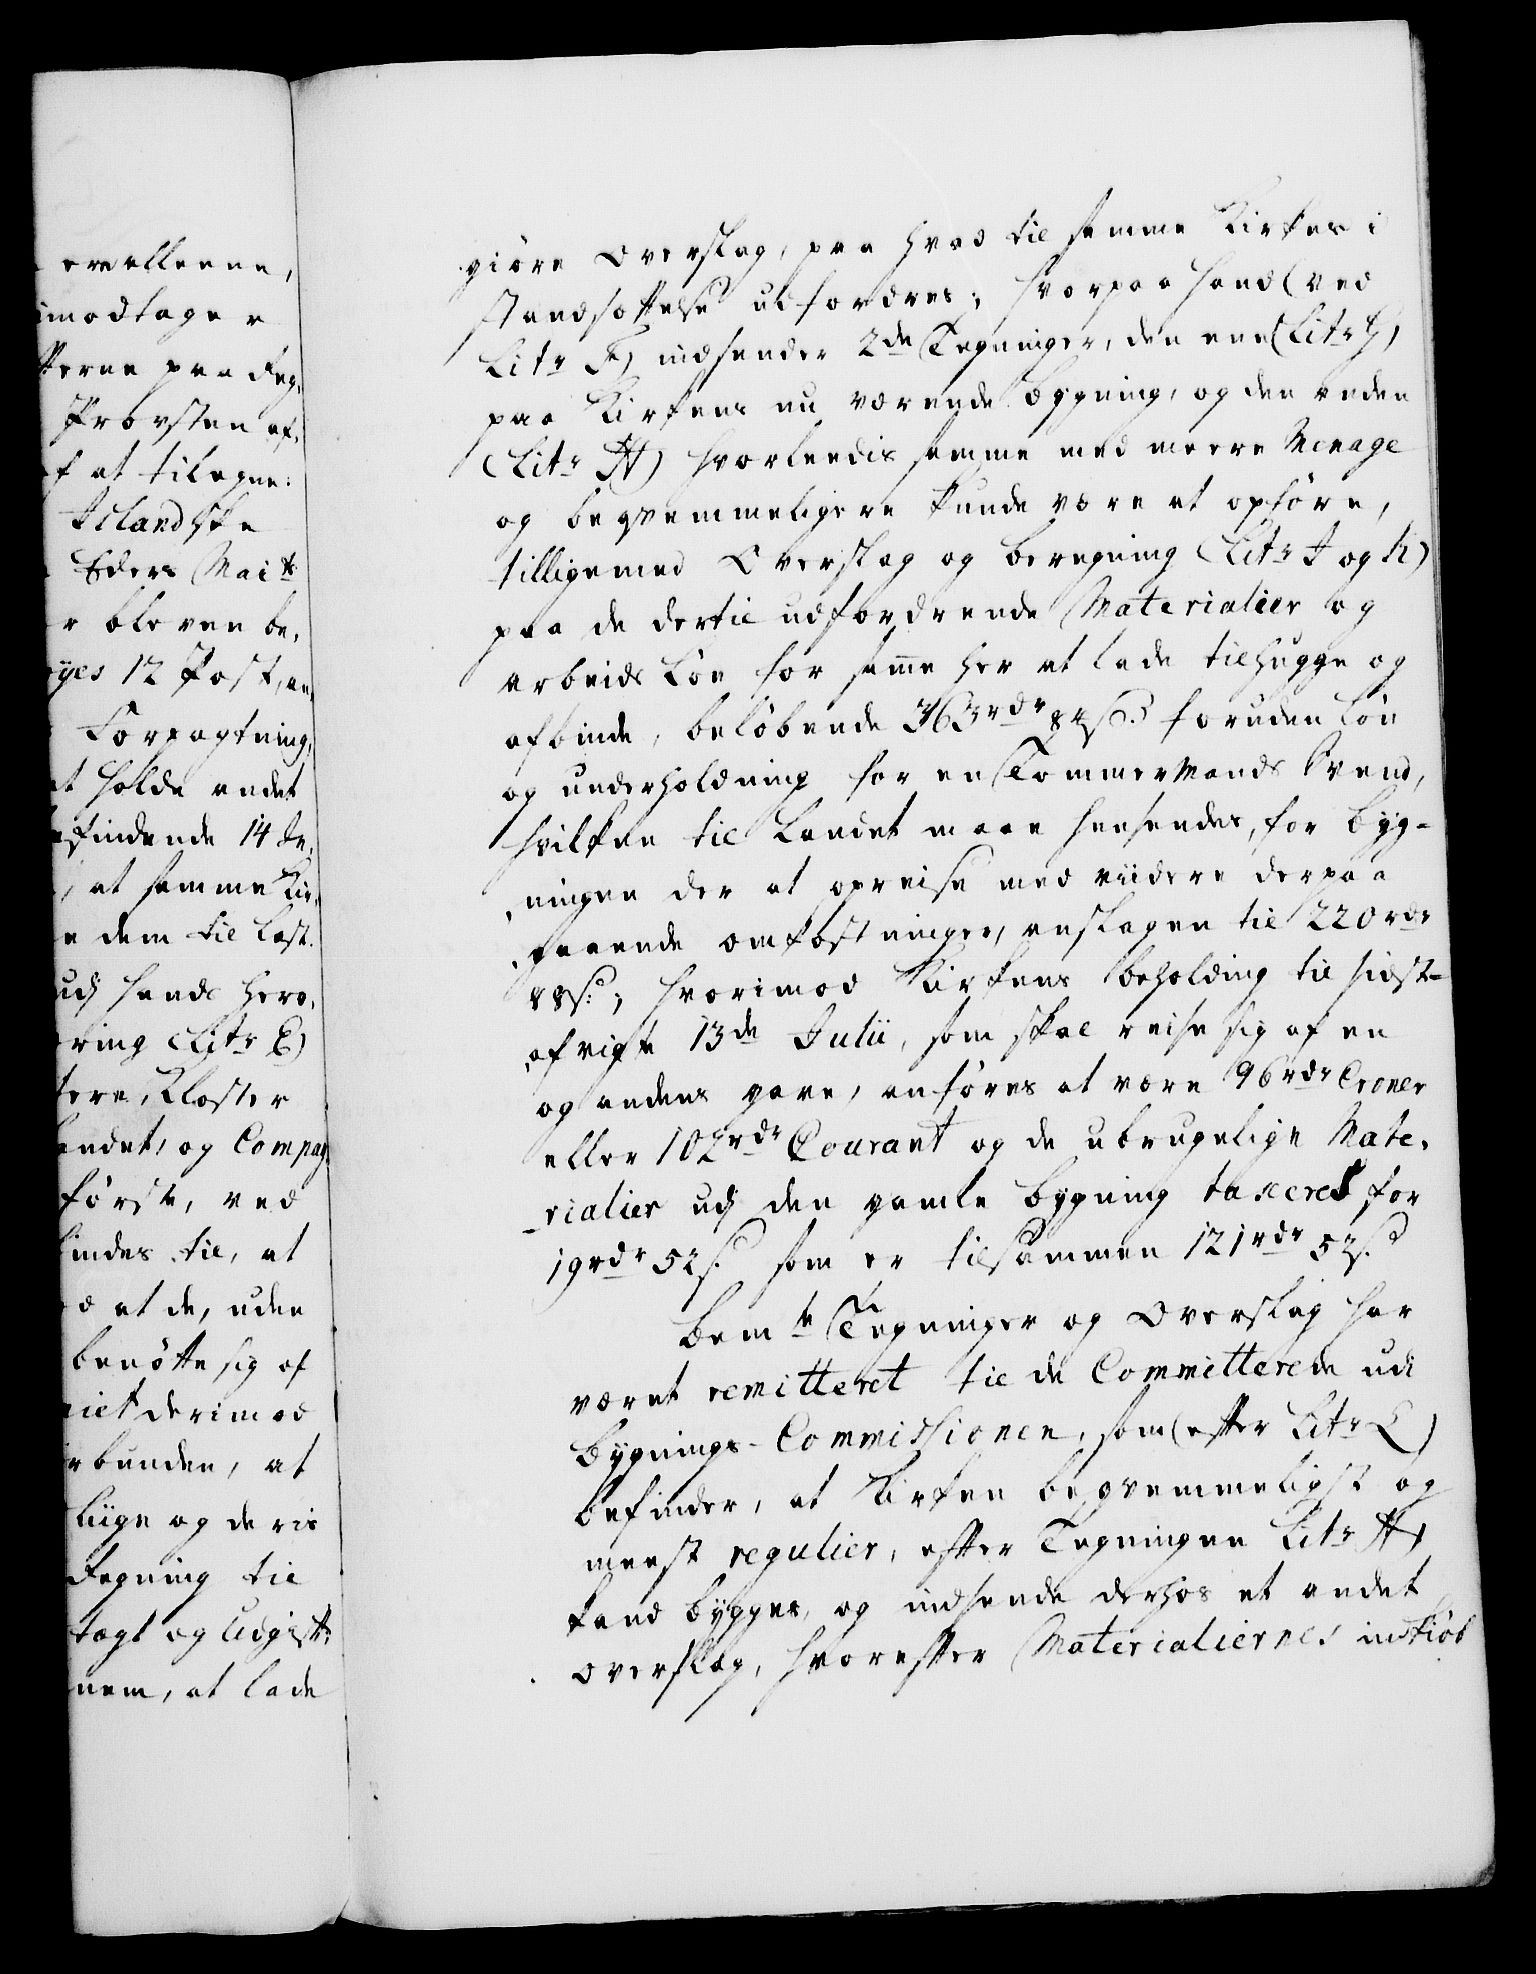 ervallerne,
imodtager
fterne paa Jeg,
Provsten af,
f at tilegne:
Islandske
Eders Maits
r bleven be,
øyes 12 Post, an,
Forpagtning,
at holde andet
befindende 14 de,
, at samme Kir,
e dem til Last.
udj hands herv,
ring (Litr E)
tere, Kloster
Landet, og Compag,
første, ved
findes til, at
d at de, uden
benøtte sig af
niet derimod
rbunden, at
liige og deris
Regning til
tægt og Udgift,
nem, at lade
giøre Overslag, paa hvad til samme Kirkes i
standsættelse udfordres; hvorpaa hand (ved
Litr F) indsender 2de Tegninger, den ene (Litr G)
paa Kirkens nu værende bygning, og den anden
(Litr H) hvorleedis samme med meere Menage
og beqvemmeligere kunde være at opføre,
tilligemed Overslag og beregning (Litr I og K)
paa de dertil udfordrende Materialier og
arbeids Løn for same her at lade tilhugge og
afbinde, beløbende 363rdr 84s. foruden Løn
og underholdning for en Tømmermands Svend,
hvilken til Landet maae hensendes, for byg-
ningen der at opreise med viidere derpaa
gaaende omkostninger, anslagen til 220rdr
88s.; hvorimod Kirkens beholding til sidst-
afvigte 13de Julii, som skal reise sig af en
og andens gave, anføres at være 96rdr Croner
eller 102rdr Courant og de ubrugelige Mate,
rialier udj den gamle bygning taxeres for
19rdr 52s. som er tilsammen 121rdr 52s.
Bemte Tegninger og Overslag har
været remitteret til de Committerede udi
Bygnings-Commissionen, som (efter Litr L)
befinder, at Kirken beqvemmeligst og
meest regulier, efter Tegningen Litr H,
kand bygges, og indsende derhos et andet
Overslag, hvorefter Materialiernes indkiøb